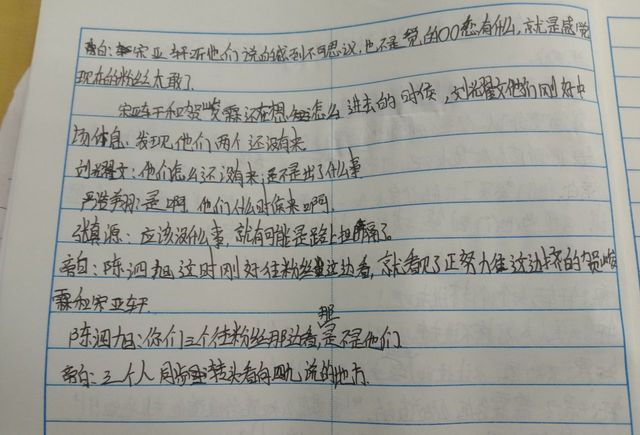 旁白:宋亚轩听他们说的感到不可思议,也不是觉的OO恋有什么,就是感觉
现在的粉丝太敢了.
宋亚轩和贺峻霖还在想怎么进去的时候,刘耀文他们刚好中
场休息,发现他们两个还没有来.
刘耀文:他们怎么还没有来,是不是出了什么事
严浩翔:是啊,他们什么时候来啊.
张真源:应该没什么事,就有可能是路上担搁了.
旁白:陈泗旭这时刚好往粉丝这边看,就看见了正努力往这边挤的贺峻
霖和宋亚轩.
陈泗旭:你们三个往粉丝那边看,那是不是他们.
旁白:三个人同步转头看向四九说的地方.